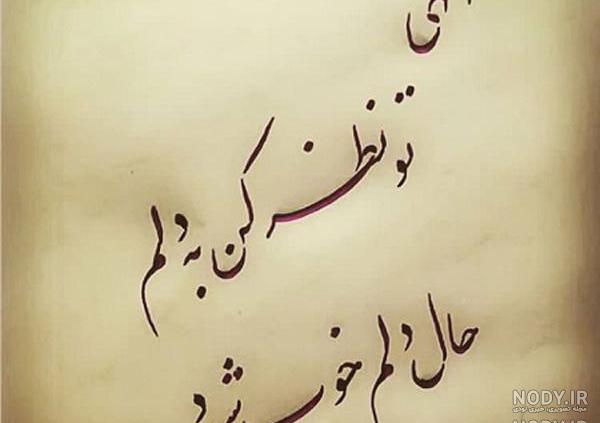 تو نظر کن به دلم
حال دلم خوب شود
NODY.IR
مجله تصویری، خبری نودی
NODY.IR